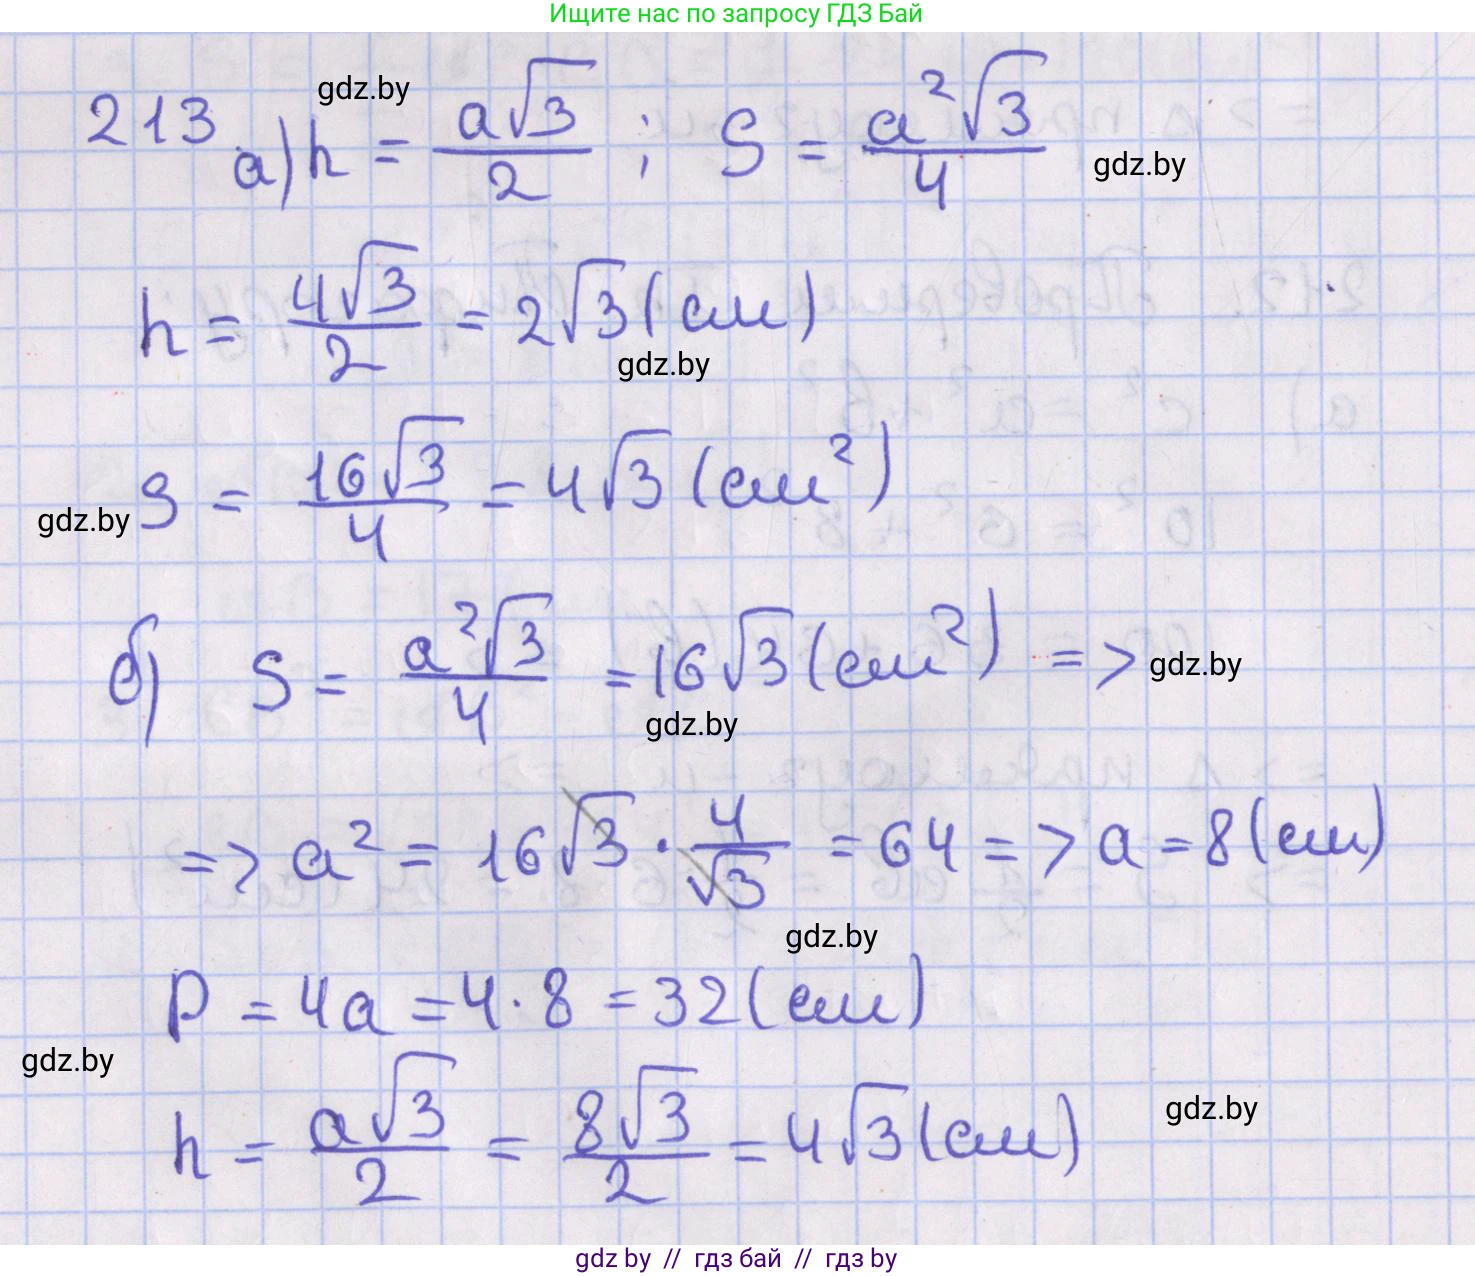 Ищите нас по запросу ГДЗ Бай
gdz.by
213 а) h = a√3/2 ; S = a²√3/4
gdz.by
h = 4√3/2 = 2√3 (см)
gdz.by
S = 16√3/4 = 4√3 (см²)
gdz.by
б) S = a²√3/4 = 16√3 (см²) =>
gdz.by
gdz.by
=> a² = 16√3 · 4/√3 = 64 => a = 8 (см)
gdz.by
P = 4a = 4 · 8 = 32 (см)
gdz.by
h = a√3/2 = 8√3/2 = 4√3 (см)
gdz.by
gdz by // гдз бай // гдз by